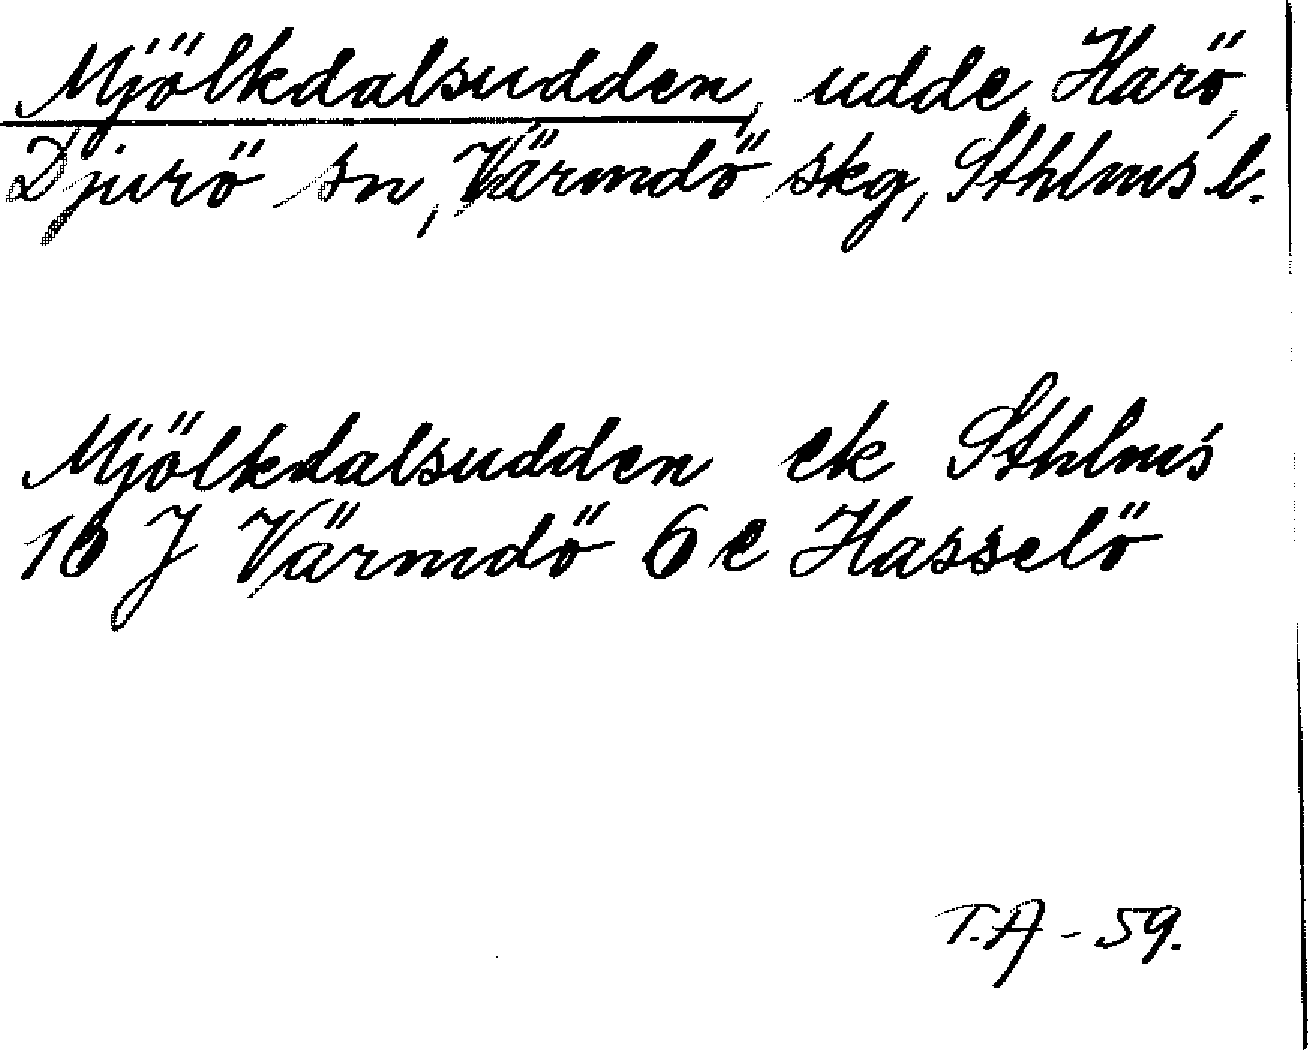 Mjölkdalsudden, udde, Harö,
Djurö sn, Värmdö skg, Sthlms l.
Mjölkdalsudden ek Sthlms
10 J Värmdö 6 e Hasselö
T.A - 59.